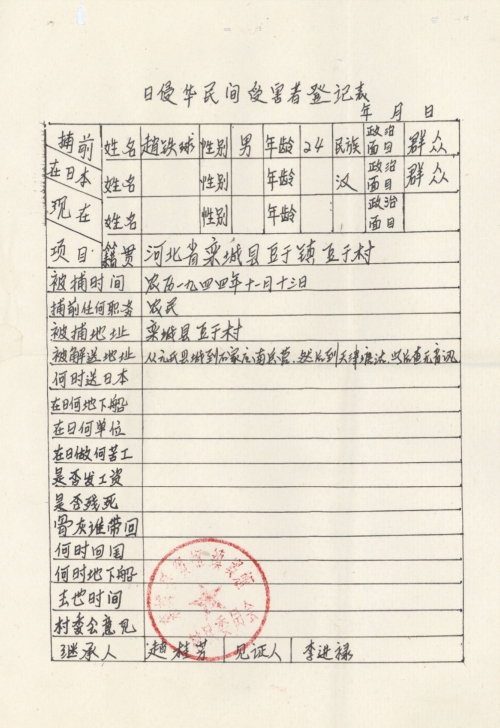 日侵华民间受害者登记表
年 月 日
捕前 姓名 趙铁球 性别 男 年龄 24 民族 政治面目 群众
在日本 姓名 性别 年龄 汉 政治面目 群众
现在 姓名 性别 年龄 政治面目
项目 籍贯 河北省栾城县豆于镇豆于村
被捕时间 农历一九四四年十一月十三日
捕前任何职务 农民
被捕地址 栾城县豆于村
被解送地址 从元氏县城到石家庄南兵营,然后到天津塘沽,以后查无音讯
何时送日本
在日何地下船
在日何单位
在日做何苦工
是否发工资
是否残死
骨灰谁带回
何时回国
何时地下船
去世时间
村委会意见
继承人 趙桂芳 见证人 李进禄